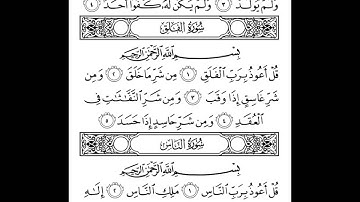 وَلَمْ يُولَدْ ٣ وَلَمْ يَكُن لَّهُ كُفُوًا أَحَدٌ ٤
سُورَةُ الفَلَقِ
بِسْمِ اللَّهِ الرَّحْمَٰنِ الرَّحِيمِ
قُلْ أَعُوذُ بِرَبِّ الْفَلَقِ ١ مِن شَرِّ مَا خَلَقَ ٢ وَمِن
شَرِّ غَاسِقٍ إِذَا وَقَبَ ٣ وَمِن شَرِّ النَّفَّاثَاتِ فِي
الْعُقَدِ ٤ وَمِن شَرِّ حَاسِدٍ إِذَا حَسَدَ ٥
سُورَةُ النَّاسِ
بِسْمِ اللَّهِ الرَّحْمَٰنِ الرَّحِيمِ
قُلْ أَعُوذُ بِرَبِّ النَّاسِ ١ مَلِكِ النَّاسِ ٢ إِلَٰهِ